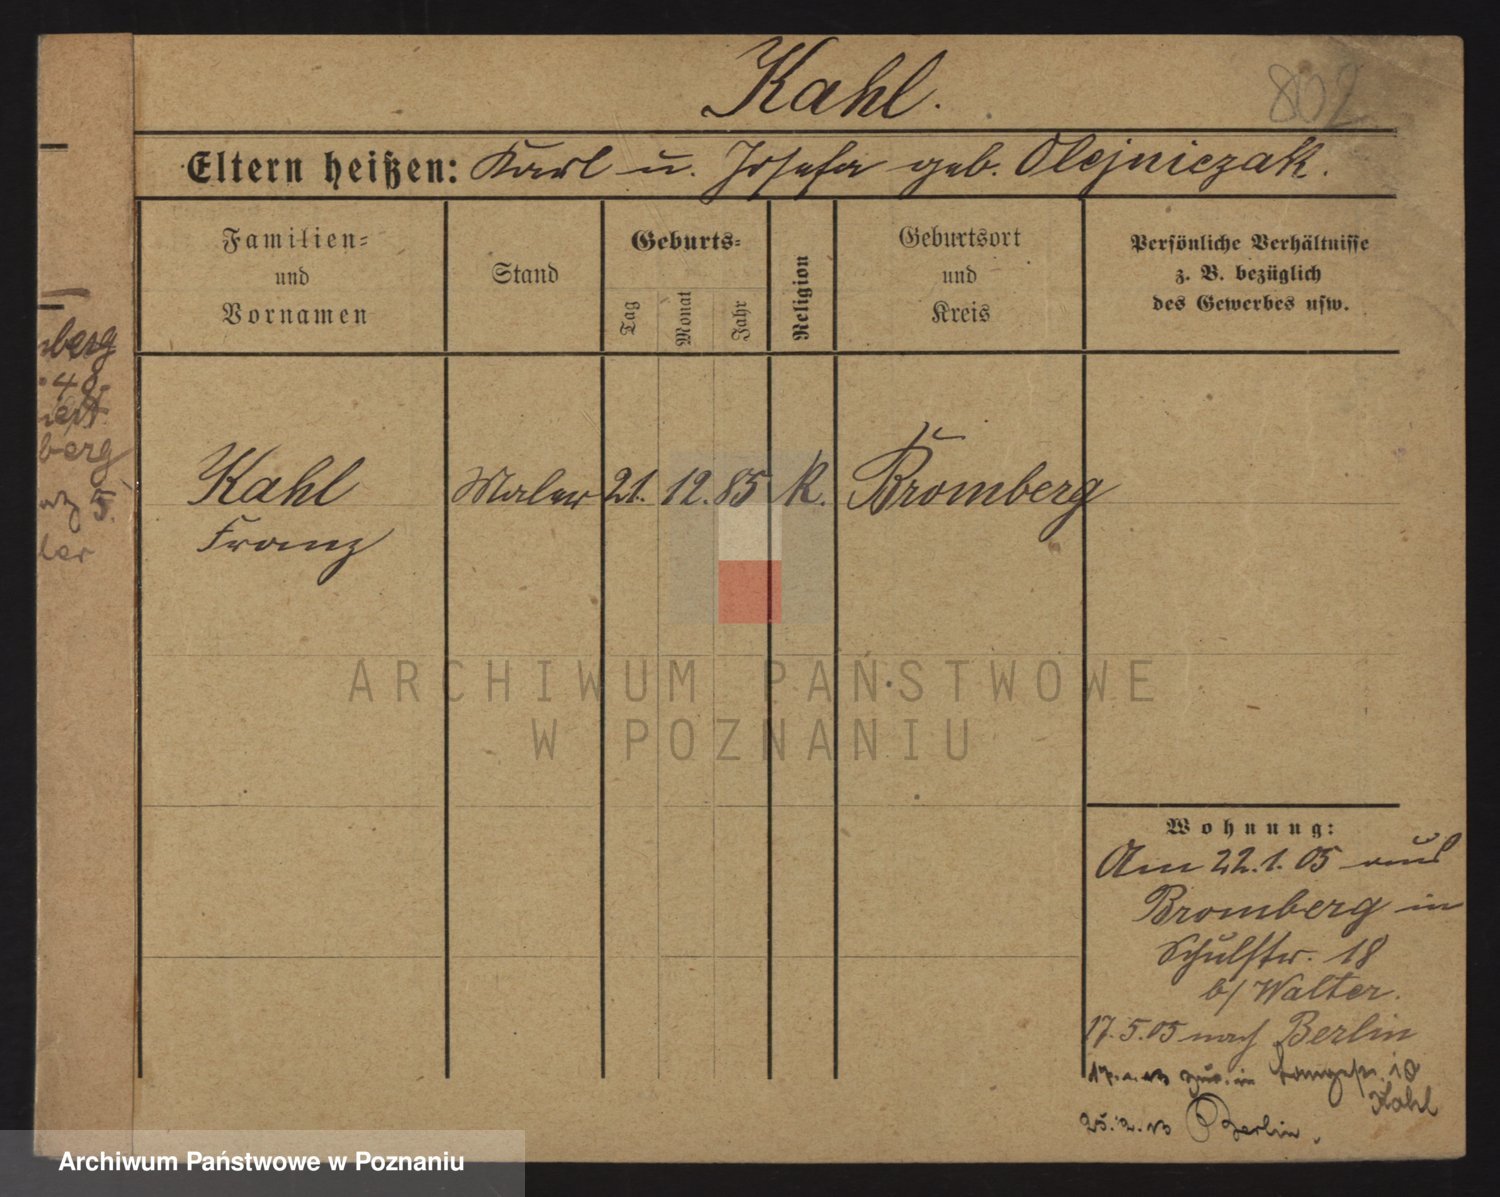 Kahl.
802
Eltern heißen: Karl u. Josefa geb. Olejniczak.
Familien-
und
Vornamen
Stand
Geburts-
Tag
Monat
Jahr
Religion
Geburtsort
und
Kreis
Persönliche Verhältnisse
z. B. bezüglich
des Gewerbes usw.
Kahl
Franz
Maler
21. 12. 85
K.
Bromberg
berg
48.
berg
5.
ler
Wohnung:
Am 22.1.05 aus
Bromberg in
Schulstr. 18
b/ Walter.
17.5.05 nach Berlin
zur. in Langestr. 10
Kahl
Berlin.
ARCHIWUM PAŃSTWOWE
W POZNANIU
Archiwum Państwowe w Poznaniu